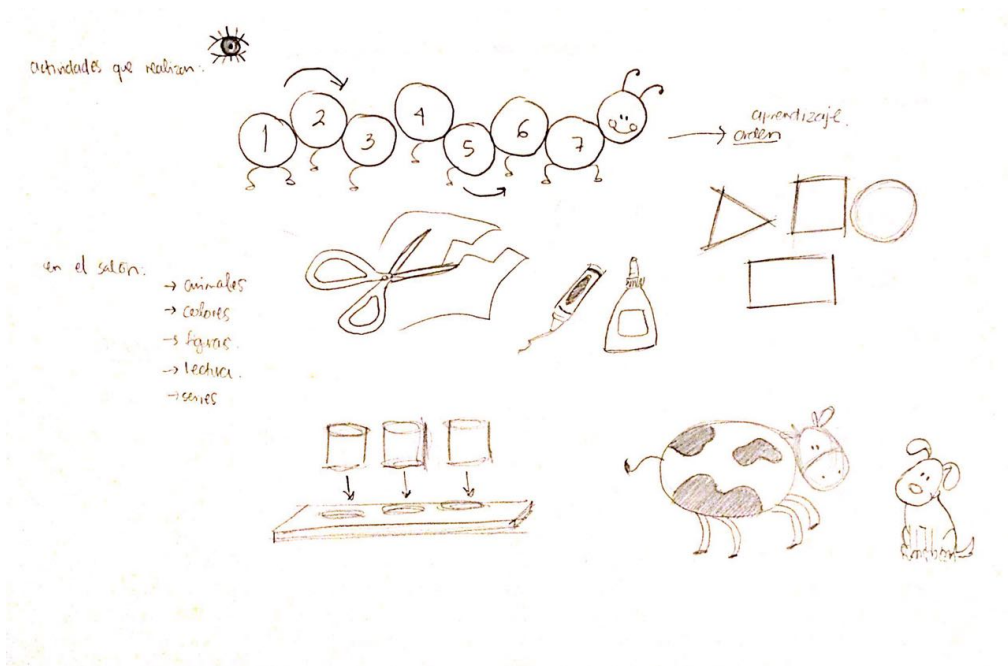 actividades que realizan:
1 2 3 4 5 6 7
aprendizaje.
orden
en el salón:
→ animales
→ colores
→ figuras.
→ lectura.
→ series